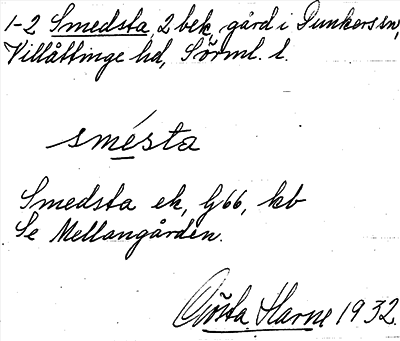 1-2 Smedsta, 2 bek, gård i Dunkers sn,
Villåttinge hd, Sörml. l.
smésta
Smedsta ek, G66, kb
Se Mellangården.
Gösta Harne 1932.